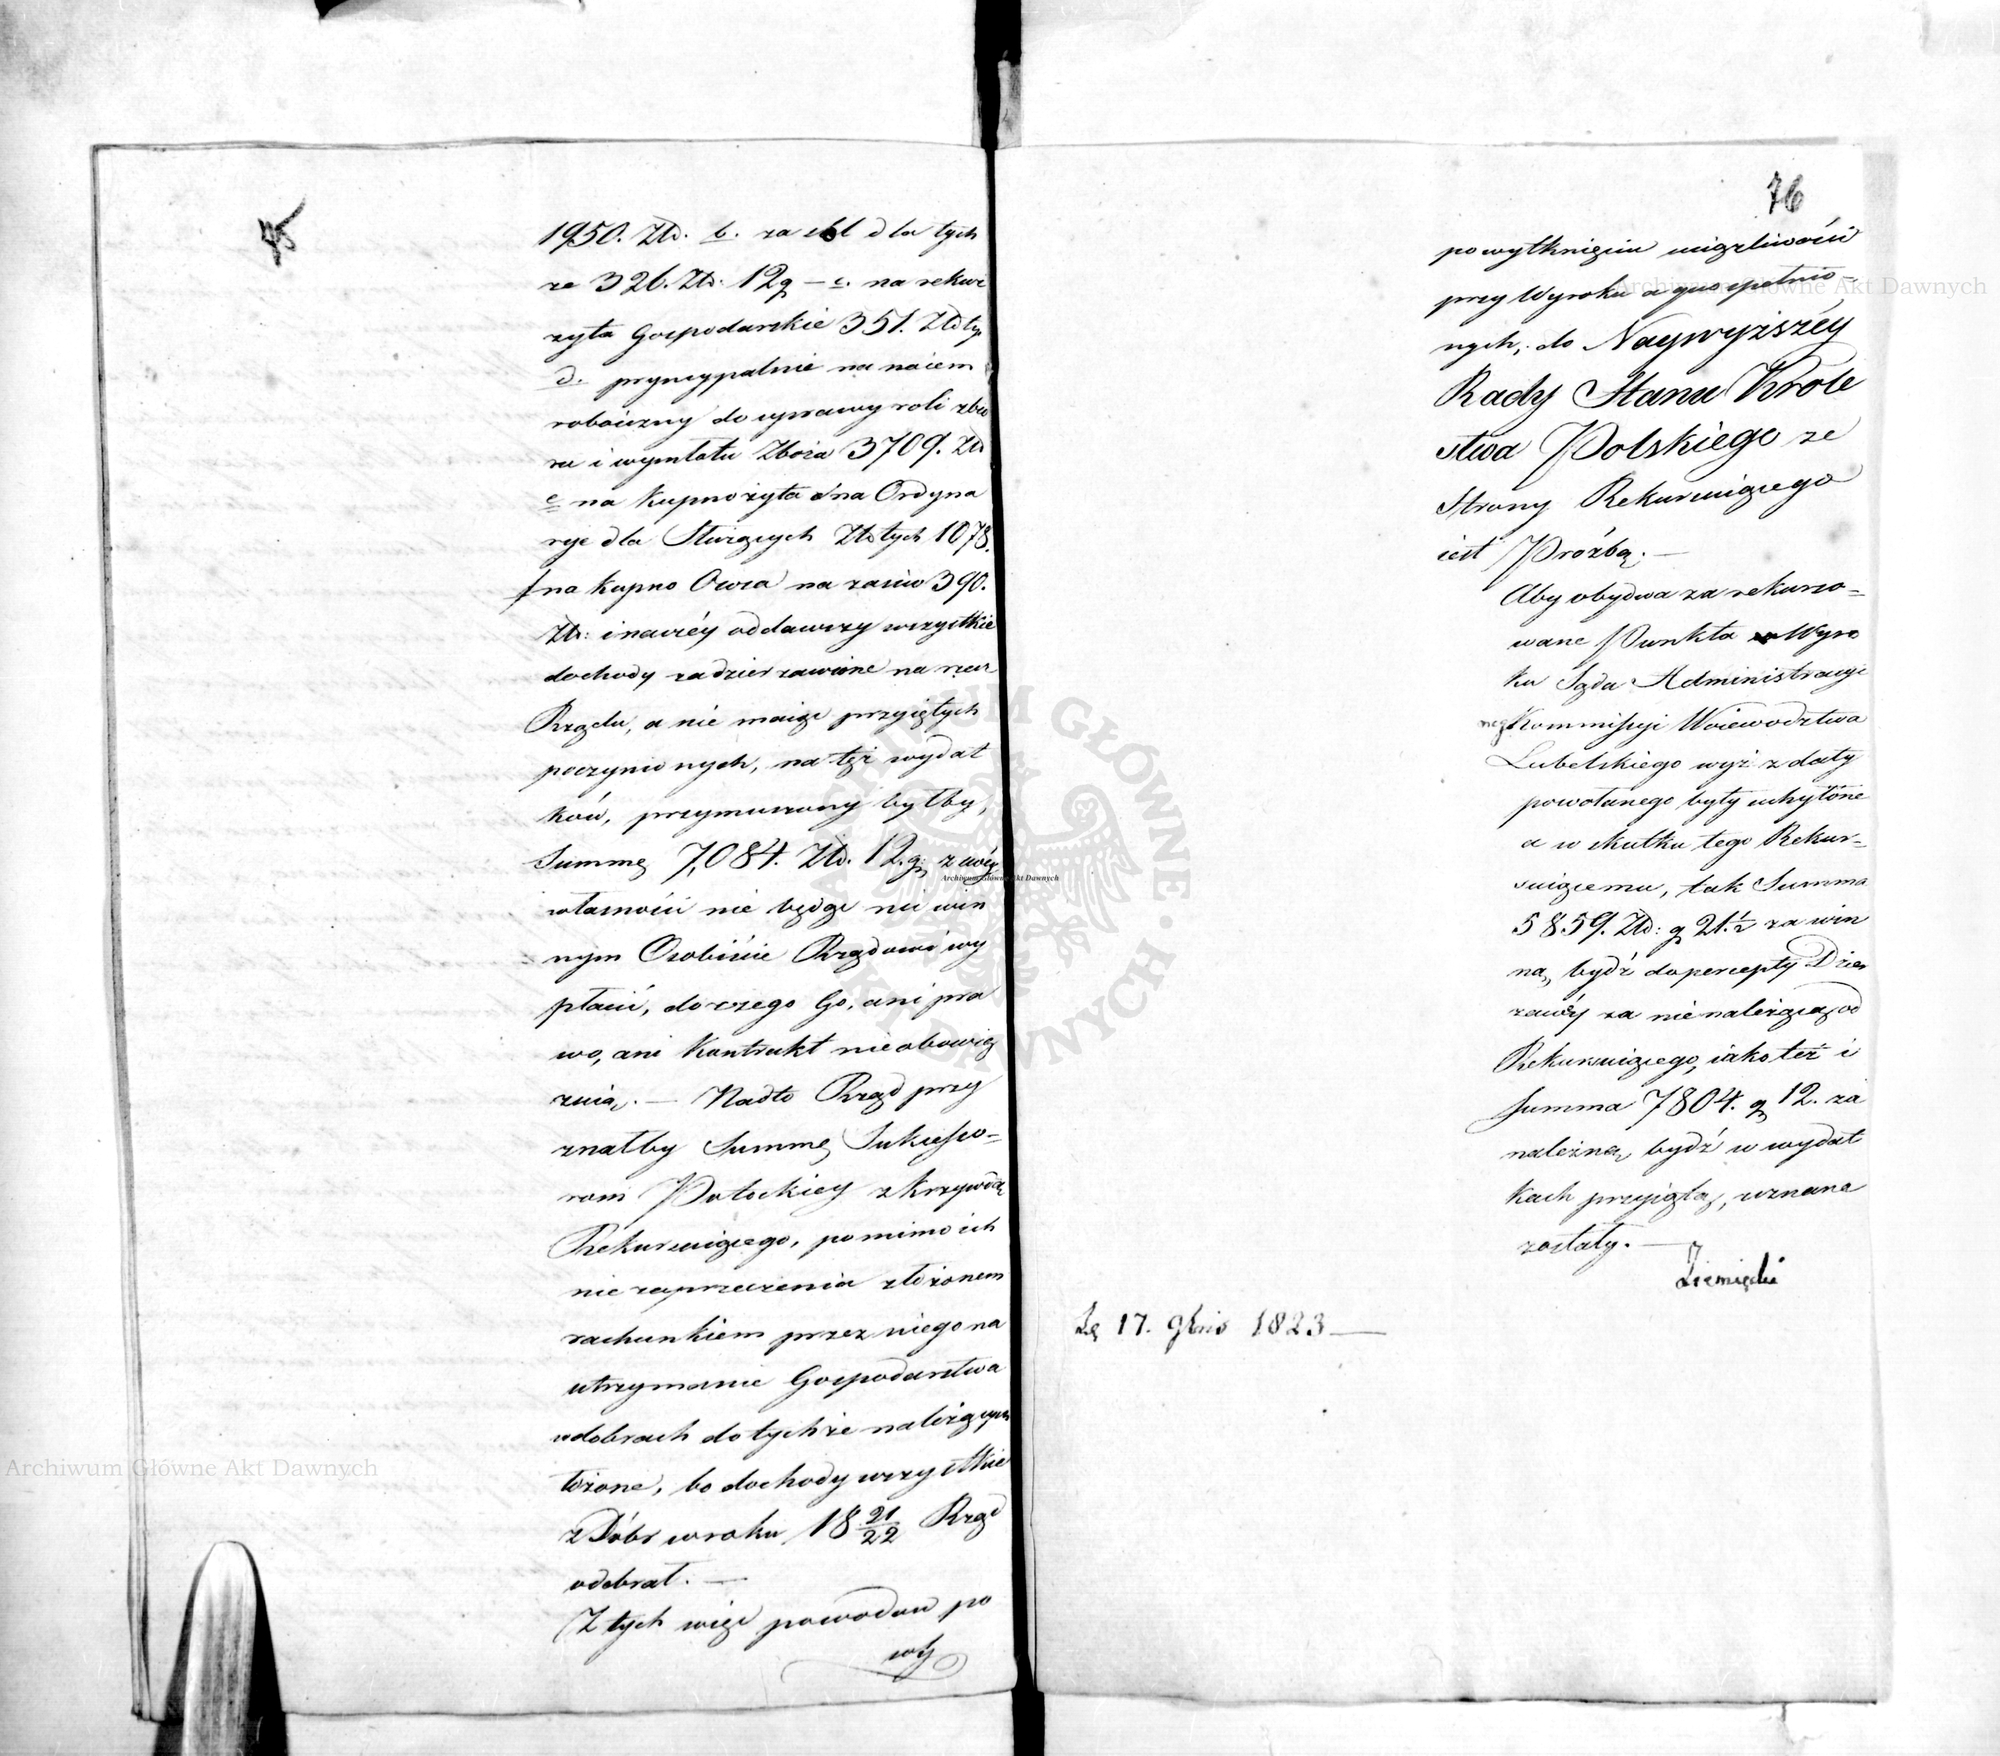 75
1950. Złł. b. za sól dla tych
że 326. Złł. 12 g — c. na rekwi
zyta Gospodarskie 351. Złłty
d. pryncypalnie na naiem
robocizny do uprawy roli zbio
ru i wymłotu Zboża 3709. Złł
e na kupno żyta dna Ordyna
ryę dla Służących Złłtych 1078.
f na kupno Owsa na zasiew 390.
Złł: i naiéy oddawszy wszystkie
dochody zadzierzawione na rzecz
Rządu, a nie maiąc przyiętych
poczynionych, na też wydat
ków, przymuszony byłby,
Summę 7,084. Złł. 12. g: z swéy
własności nie będąc nic win
nym Osobiście Rządowi wy
płacić, do czego Go, ani pra
wo, ani Kontrakt nie obowią
zuią. — Nadto Rząd przy
znałby Summę Sukcesso-
rom Potockiey z krzywdą
Rekuruiącego, pomimo ich
nie zaprzeczenia złożonem
rachunkiem przez niego na
utrzymanie Gospodarstwa
w dobrach do tychże należących
łożone, bo dochody wszystkie
z Dóbr w roku 18 21/22 Rząd
odebrał. —
Z tych więc powodów po
wy
76
po wytknięciu uciążliwości
przy Wyroku a quo spełnio-
nych, do Naywyższéy
Rady Stanu Króle
stwa Polskiego ze
Strony Rekuruiącego
iest Proźba. —
Aby obydwa za rekurso-
wane Punkta Wyro
ku Sądu Administracyi
neg Kommissyi Woiewodztwa
Lubelskiego wyż z daty
powołanego były uchylone
a w skutku tego Rekur-
uiącemu, tak Summa
5859. Złł: g 21 ½ za win
ną, bydź do percepty Dzier
żawéy za nienależącą od
Rekuruiącego, iako też i
Summa 7804. g 12. za
należną, bydź w wydat
kach przyiętą, uznane
zostały. —
Ziemięcki
Zę 17. 9bris 1823 —
Archiwum Główne Akt Dawnych
Archiwum Główne Akt Dawnych
Archiwum Główne Akt Dawnych
ARCHIWUM GŁÓWNE · AKT DAWNYCH ·